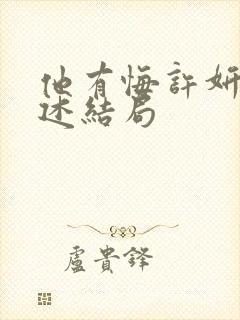 他有悔許妍
述結局
盧貴鋒